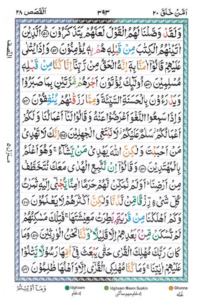 اَمَّنْ خَلَقَ ٢٠ ٣٩٣ اَلْقَصَص ٢٨
وَلَقَدْ وَصَّلْنَا لَهُمُ الْقَوْلَ لَعَلَّهُمْ يَتَذَكَّرُوْنَ اَلَّذِيْنَ
اٰتَيْنٰهُمُ الْكِتٰبَ مِنْ قَبْلِهٖ هُمْ بِهٖ يُؤْمِنُوْنَ وَاِذَا يُتْلٰى
عَلَيْهِمْ قَالُوْٓا اٰمَنَّا بِهٖٓ اِنَّهُ الْحَقُّ مِنْ رَّبِّنَآ اِنَّا كُنَّا مِنْ قَبْلِهٖ
مُسْلِمِيْنَ اُولٰٓئِكَ يُؤْتَوْنَ اَجْرَهُمْ مَّرَّتَيْنِ بِمَا صَبَرُوْا
وَيَدْرَءُوْنَ بِالْحَسَنَةِ السَّيِّئَةَ وَمِمَّا رَزَقْنٰهُمْ يُنْفِقُوْنَ وَاِذَا
سَمِعُوا اللَّغْوَ اَعْرَضُوْا عَنْهُ وَقَالُوْا لَنَآ اَعْمَالُنَا وَلَكُمْ
اَعْمَالُكُمْ سَلٰمٌ عَلَيْكُمْ لَا نَبْتَغِى الْجٰهِلِيْنَ اِنَّكَ لَا تَهْدِىْ
مَنْ اَحْبَبْتَ وَلٰكِنَّ اللّٰهَ يَهْدِىْ مَنْ يَّشَآءُ وَهُوَ اَعْلَمُ
بِالْمُهْتَدِيْنَ وَقَالُوْٓا اِنْ نَّتَّبِعِ الْهُدٰى مَعَكَ نُتَخَطَّفْ
مِنْ اَرْضِنَا اَوَلَمْ نُمَكِّنْ لَّهُمْ حَرَمًا اٰمِنًا يُّجْبٰٓى اِلَيْهِ
ثَمَرٰتُ كُلِّ شَىْءٍ رِّزْقًا مِّنْ لَّدُنَّا وَلٰكِنَّ اَكْثَرَهُمْ لَا يَعْلَمُوْنَ
وَكَمْ اَهْلَكْنَا مِنْ قَرْيَةٍ بَطِرَتْ مَعِيْشَتَهَا فَتِلْكَ مَسٰكِنُهُمْ
لَمْ تُسْكَنْ مِّنْ بَعْدِهِمْ اِلَّا قَلِيْلًا وَكُنَّا نَحْنُ الْوٰرِثِيْنَ وَمَا
كَانَ رَبُّكَ مُهْلِكَ الْقُرٰى حَتّٰى يَبْعَثَ فِىْٓ اُمِّهَا رَسُوْلًا يَّتْلُوْا
عَلَيْهِمْ اٰيٰتِنَا وَمَا كُنَّا مُهْلِكِى الْقُرٰٓى اِلَّا وَاَهْلُهَا ظٰلِمُوْنَ